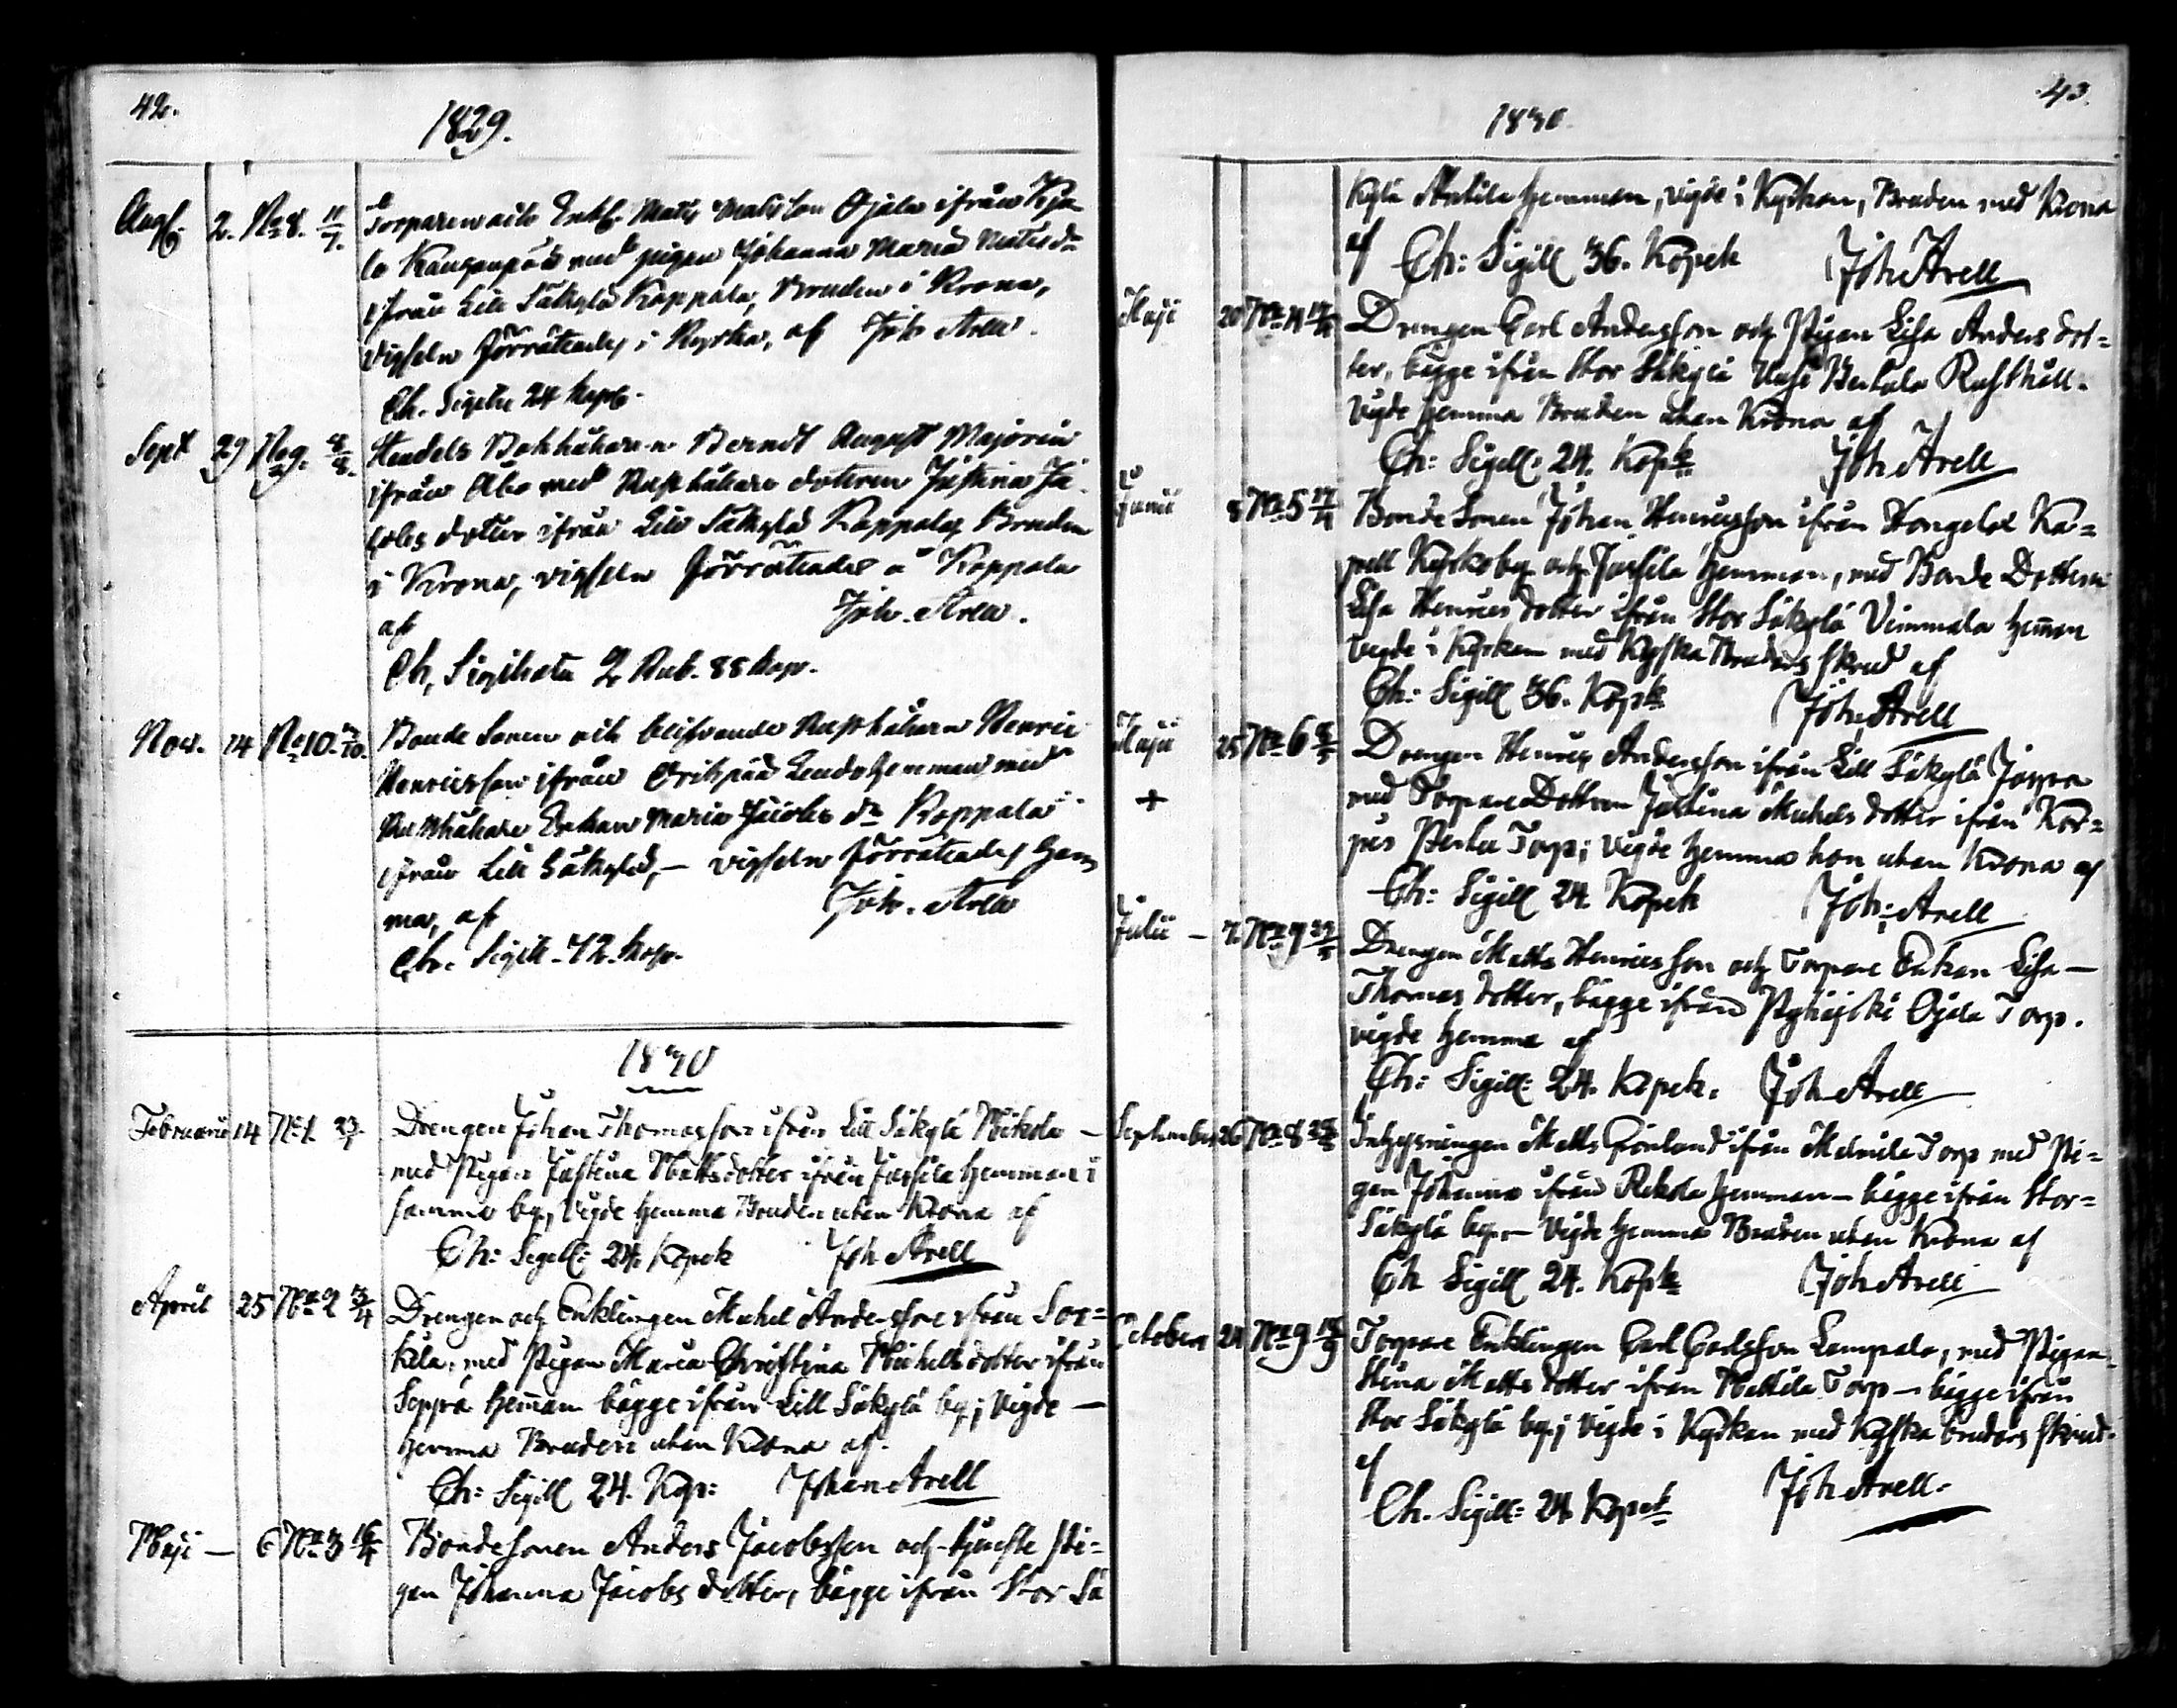 42.
1829.
Aug. 2. No 8. 11/7. Torparen och Enkl. Matts Matsson Ojala ifrån Kju
lo Kauganpää med pigan Johanna Maria Matsdr
ifrån Lill Säkylä Kappala, Bruden i Krona,
vigseln förrättades i Kyrka, af Joh. Arell.
Ch. Sigill 24 kop.
Sept 29 No 9. Handels Bokhållaren Berndt August Majorin
ifrån Åbo med Rusthållare dotteren Justina Ja
cobs dotter ifrån Lill Säkylä Kappala, Bruden
i Krona, vigseln förrättades å Kappala
af Joh. Arell.
Ch. Sigillata 2 Rub. 88 kop.
Nov. 14 No 10. Bonde Sonen och blifvande Rusthållaren Henric
Henricsson ifrån hemman med
Rusthållare Enkan Maria Jacobs dr Kappala
ifrån Lill Säkylä, — vigseln förrättades hem
ma, af Joh. Arell
Ch. Sigill. 72. kop.
1830
Februarii 14 No 1. Drengen Johan Thomasson ifrån Lill Säkylä —
med Pigan Justina Mattsdotter ifrån Jussila hemman i
samma by, vigde hemma Bruden utan Krona af
Ch: Sigill: 24. Kopek Joh Arell
April 25 No 2 Drengen och Enklingen Michel Andersson ifrån Sor=
kila, med Pigan Maria Christina Michelsdotter ifrån
Seppä hemman bägge ifrån Lill Säkylä by; vigde —
hemma Bruden utan Krona af.
Ch: Sigill 24. Kop: Johan Arell
Maji — 6 No 3 16/4 Bondesonen Anders Jacobsson och Pi=
gan Johanna Jacobs dotter, bägge ifrån Stor Sä
43.
1830
kylä Anttila hemman, vigde i Kyrkan, Bruden med Krona
af Ch: Sigill 36. Kopek Joh Arell
Maji 20 No 4 Drengen Carl Andersson och Pigan Lisa Anders dot=
ter, bägge ifrån Stor Säkylä Uusi Rusthåll.
vigde hemma Bruden utan Krona af
Ch: Sigill: 24. Kopk Joh Arell
Junii 8 No 5 Bonde Sonen Johan Henricsson ifrån Hongola Ka=
pell Kyrkoby och Jussila hemman, med Bonde Dottren
Lisa Henrics dotter ifrån Stor Säkylä Vimmala heman
vigde i Kyrkan med Kyska Bruders skrud af
Ch: Sigill 36. Kopk Joh. Arell
Maji 25 No 6 Drengen Henric Andersson ifrån Lill Säkylä
+ med Torpare Dottren Justina Michels dotter ifrån Kor=
Torp; vigde hemma hon utan Krona af
Ch: Sigill 24. Kopek Joh: Arell
Julii — 4. No 7 Drengen Matts Henricsson och Torpare Enkan Lisa —
Thomas dotter, bägge ifrån Pyhäjoki Ojala Torp.
vigde hemma af
Ch: Sigill: 24. Kopek. Joh Arell
September 26 No 8 Inhysningen Matts Grönlund ifrån Torp med Pi=
gan Johanna ifrån hemman — bägge ifrån Stor=
Säkylä by. — vigde hemma Bruden utan Krona af
Ch Sigill 24. Kopk Joh Arell
October 24 No 9 Torpare Enklingen Carl Carlsson Lampala, med Pigan
Stina Matts dotter ifrån Torp — bägge ifrån
Stor Säkylä by; vigde i Kyrkan med Kyska bruders skrud.
af Ch. Sigill: 24 Kopek Joh Arell.